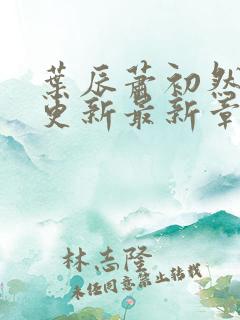 葉辰蕭初然
更新最新章
林志隆
未经同意禁止转载